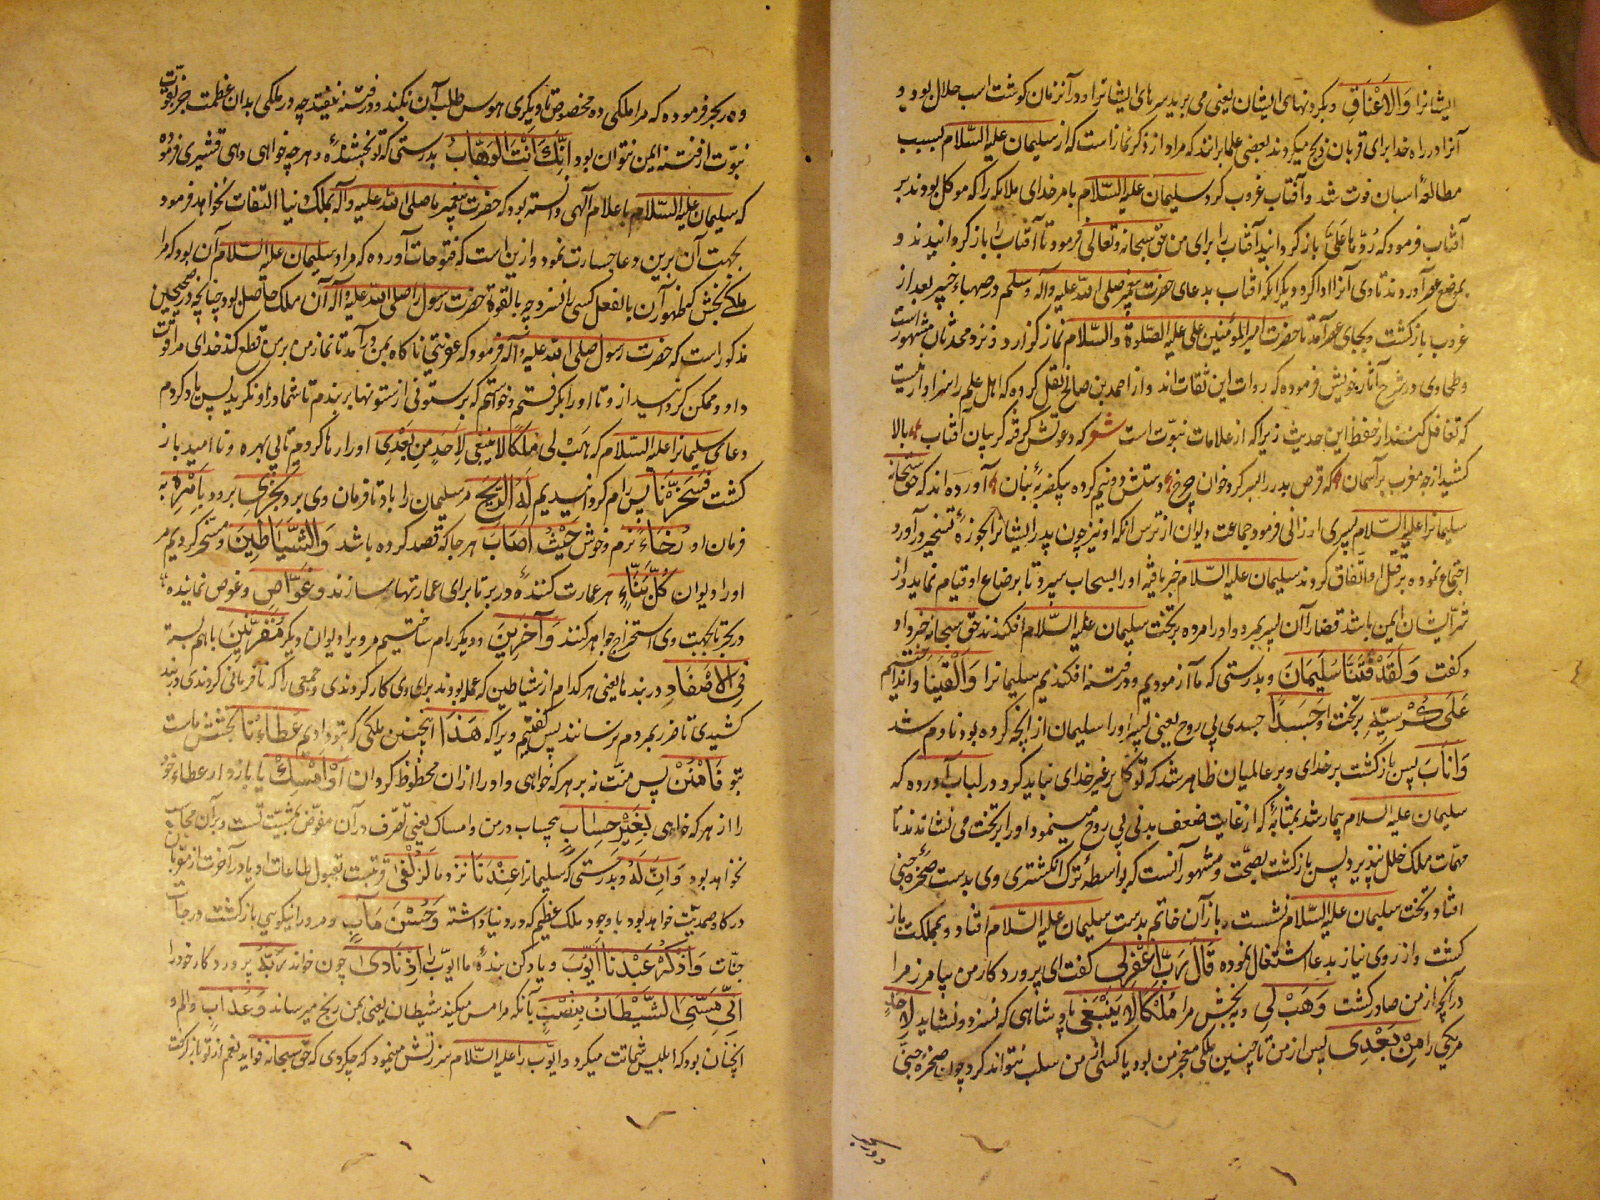 ایشانرا وَالاَعْنَاقِ و بگردنهای ایشان یعنی می برید سرهای ایشانرا و در آنزمان گوشت اسب حلال بود و
آنرا در راه خدا برای قربان ذبح میکردند بعضی علما برانند که مراد از ذکر نمازاست که از سلیمان علیه السّلام بسبب
مطالعهٔ اسبان فوت شد و آفتاب غروب کرد سلیمان علیه السّلام بامر خدای ملائکه را که موکل بودند بر
آفتاب فرمود که رُدّوها عَلَیَّ باز گردانید آفتاب را برای من حق سبحانه و تعالی فرمود تا آفتاب را باز گردانیدند و
بموضع عصر آوردند تا وی آنرا ادا کرد و دیگر آنکه آفتاب بدعای حضرت پیغمبر صلی الله علیه و آله وسلم در صهباء خیبر بعد از
غروب باز گشت و بجای عصر آمد تا حضرت امیر المؤمنین علی علیه الصّلوة والسّلام نماز گزارد و نزد محدثان مشهور است
و طحاوی در شرح آثار خویش فرموده که روات این ثقات اند و از احمد بن صالح نقل کرده که اهل علم را سزاوار نیست
که تغافل کنند از حفظ این حدیث زیرا که از علامات نبوّت است شعر که دعوتش گرفته گریبان آفتاب بالا
کشید از چه مغرب بر آسمان که قرص بدر را بسر کرد خوان چرخ دستش دو نیم کرده بیکضربهٔ بنان آورده اند که حق سبحانه
سلیمانرا علیه السّلام پسری ارزانی فرمود جماعت دیوان از ترس آنکه او نیز چون پدر ایشانرا بحوزهٔ تسخیر در آورد
اجتماع نموده بر قتل او اتّفاق کردند سلیمان علیه السّلام خبر یافته او را بسحاب سپرد تا برضاع او قیام نماید و از
شرّ ایشان ایمن باشد قضا را آن پسر بمرد و او را مرده بر تخت سلیمان علیه السّلام افکندند حق سبحانه خبر داد
و گفت وَلَقَدْ فَتَنَّا سُلَیْمٰنَ و بدرستی که ما آزمودیم و در فتنه افکندیم سلیمانرا وَاَلْقَیْنَا و انداختیم
عَلٰی كُرْسِیِّهٖ بر تخت او جَسَدًا جسدی بی روح یعنی پسر او را سلیمان از آنچه کرده بود نادم شد
وَاَنَابَ پس باز گشت بر خدای و بر عالمیان ظاهر شد که توکل بر غیر خدای نباید کرد و در لباب آورده که
سلیمان علیه السلام بیمار شد بمثابهٔ که از غایت ضعف بدنی بی روح مینمود او را بر تخت می نشاندند تا
مهمّات ملک خلل نپذیرد پس باز گشت بصحّت و مشهور آنست که بواسطهٔ ترک انگشتری وی بدست صخرهٔ جنی
افتاد و بتخت سلیمان علیه السّلام نشست و باز آن خاتم بدست سلیمان علیه السّلام افتاد و بمملکت باز
گشت و از روی نیاز بدعا اشتغال نموده قَالَ رَبِّ اغْفِرْلِی گفت ای پروردگار من بیامرز مرا
در آنچه از من صادر گشت وَهَبْ لِی و ببخش مرا مُلْكًا لَا یَنْبَغِی پادشاهی که نسزد و نشاید لِاَحَدٍ
مر یکی را مِنْ بَعْدِی پس از من تا چنین ملکی معجز من بود یا کسی از من سلب نتواند کرد چون صخره جنی
و در بحر
و در بحر فرموده که مرا ملکی ده مخصوص تا دیگری هوس طلب آن نکند و در فتنه نیفتد چه در ملکی بدان عظمت جز بقوت
نبوّت از فتنه ایمن نتوان بود اِنَّكَ اَنْتَ الْوَهَّابُ بدرستی که تو بخشندهٔ و هر چه خواهی دهی قشیری فرموده
که سلیمان علیه السّلام باعلام الٓهی دانسته بود که حضرت پیغمبر ما صلی الله علیه وآله بملک دنیا التفات نخواهد فرمود
بجهت آن برین دعا جسارت نمود و ازین است که فتوحات آورده که مراد سلیمان علیه السّلام آن بود که مرا
ملکی بخش که ظهور آن بالفعل کسی را نسزد چه بالقوة حضرت رسول را صلی الله علیه وآله آن ملک حاصل بود چنانچه در صحیحین
مذکور است که حضرت رسول صلی الله علیه وآله فرمود که عفریتی ناگاه بمن در آمد تا نماز من بر من قطع کند خدای مرا قوت
داد و ممکن گردانید از و تا او را بگرفتم و خواستم که بر ستونی از ستونها بر بندم تا شما در او نگرید پس یاد کردم
دعای سلیمانرا علیه السّلام که هَبْ لِی مُلْكًا لَا یَنْبَغِی لِاَحَدٍ مِنْ بَعْدِی او را رها کردم تا بی بهره و نا امید باز
گشت فَسَخَّرْنَا پس رام گردانیدیم لَهُ الرِّیحَ مر سلیمان را باد تا فرمان وی برد تَجْرِی برود بِاَمْرِهٖ به
فرمان او رُخَاءً نرم و خوش حَیْثُ اَصَابَ هر جا که قصد کرده باشد وَالشَّیَاطِینَ و مسخّر کردیم مر
او را دیوان كُلَّ بَنَّاءٍ هر عمارت کنندهٔ در بر تا برای عمارتها سازند وَغَوَّاصٍ و غوص نماینده
در بحر تا بجهت وی استخراج جواهر کنند وَآخَرِینَ و دیگر رام ساختیم مر ویرا دیوان دیگر مُقَرَّنِینَ باهم بسته
فِی الْاَصْفَادِ در بندها یعنی هر کدام از شیاطین که عمله بودند برای وی کار کردندی و جمعی را که نافرمانی کردندی در بند
کشیدی تا ضرر بمردم نرسانند پس گفتیم ویرا که هٰذَا اینچنین ملکی که بتو دادیم عَطَاؤُنَا بخشش ماست
بتو فَامْنُنْ پس منّت نه بر هر که خواهی و او را از ان محظوظ گردان اَوْ اَمْسِكْ یا باز دار عطاء خود
را از هر که خواهی بِغَیْرِ حِسَابٍ بیحساب در من و امساک یعنی تصرف در آن مفوّض بمشیّت تست و بر آن محاسبت
نخواهد بود وَاِنَّ لَهُ و بدرستی که سلیمانرا عِنْدَنَا نزد ما لَزُلْفٰی قربتست بقبول طاعات او یا در آخرت از مقربان
درگاه صمدیّت خواهد بود با وجود ملک عظیم که در دنیا داشته وَحُسْنَ مَآبٍ و مر و را نیکویی باز گشت در درجات
جنّات وَاذْكُرْ عَبْدَنَا اَیُّوبَ و یاد کن بندهٔ ما ایوّب را اِذْ نَادٰی چون خواند رَبَّهُ پروردگار خود را
اَنِّی مَسَّنِیَ الشَّیْطَانُ بِنُصْبٍ بآنکه مرا مس میکند شیطان یعنی بمن رنج میرساند وَعَذَابٍ و الم و
آنچنان بود که ابلیس شماتت میکرد و ایّوب را علیه السّلام سرزنش مینمود که چه کردی که حق سبحانه و تعالی نعم از تو باز گرفت